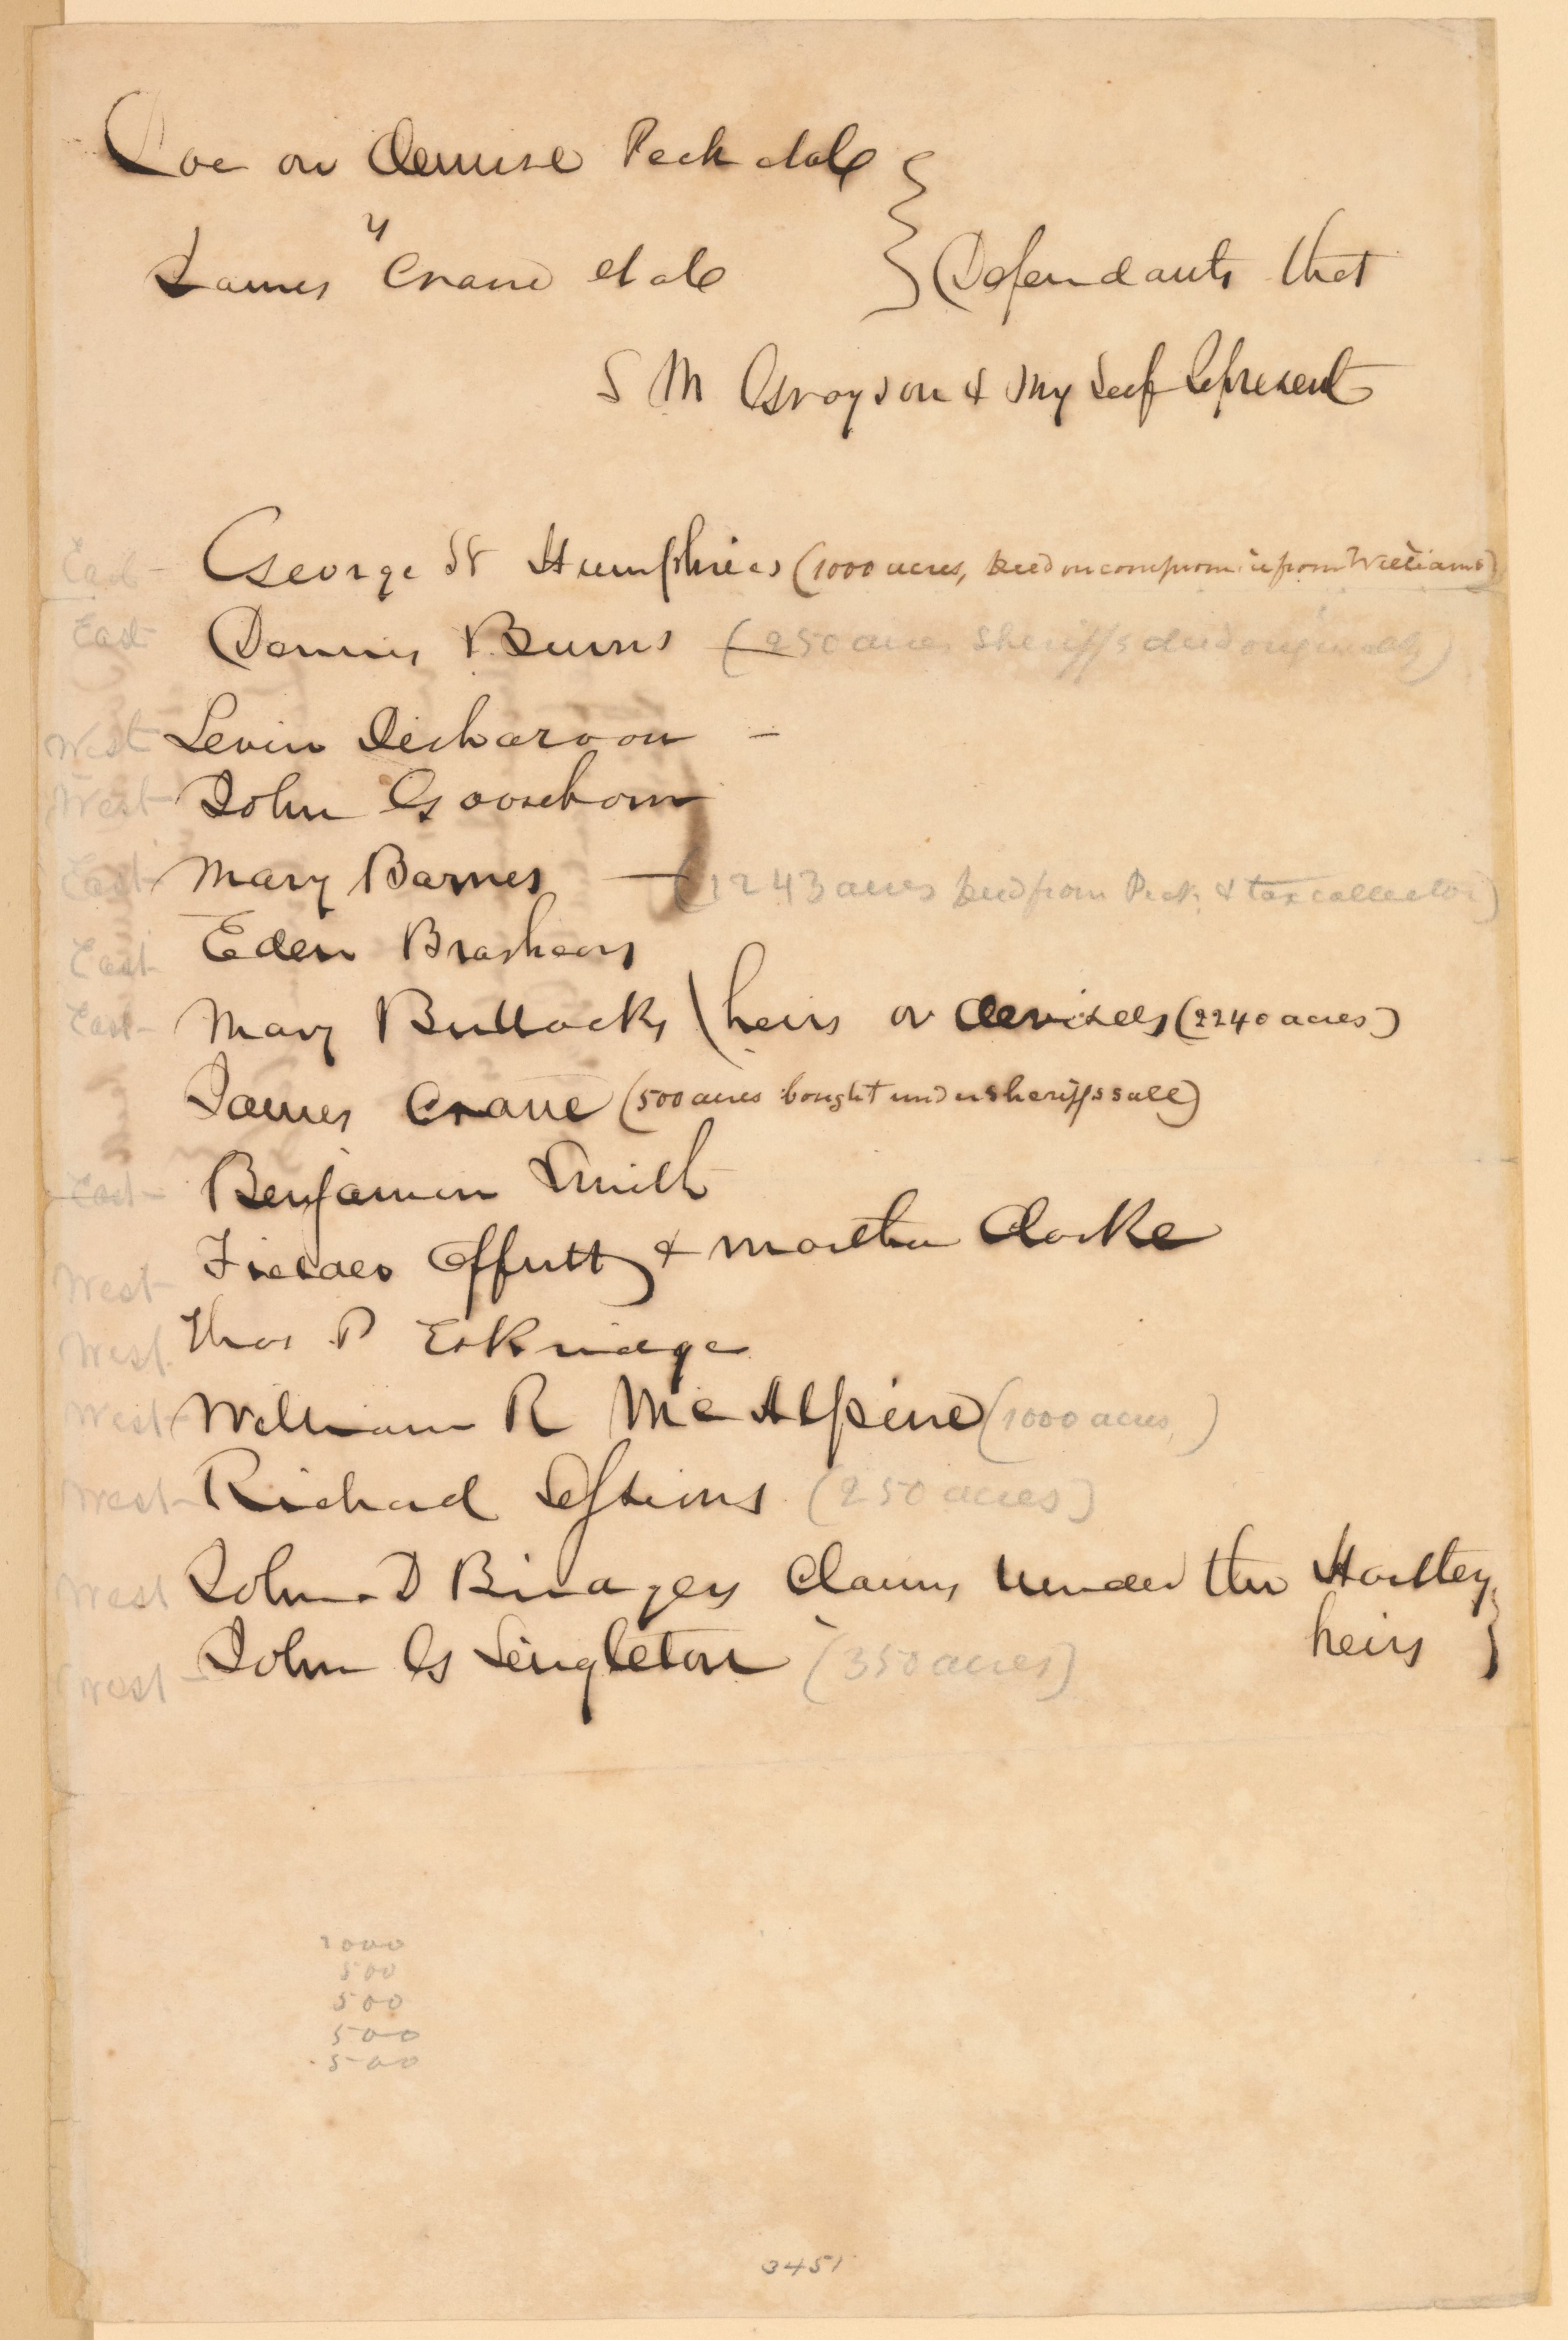 Doe on demise Peck et al
v
James Crane et al } Defendants that
S M Grayson & my self represent
East - George W Humphries (1000 acres, deed on compromise from Williams)
East Dennis Burns (250 acres Sheriffs deed originally)
West Levin Disharoon -
West John Goosehorn
East Mary Barnes - (1243 acres deed from Peck & tax collector)
East Eden Brashears
East - Mary Bullocks heirs or devisees (2240 acres)
James Crane (500 acres bought under sheriffs sale)
East - Benjamin Smith
West Fielder Offutt & Martha Clarke
West Thos P Eskridge
West William R McAlpine (1000 acres,)
West Richard Sessions (250 acres)
West John D claims under the Hartley heirs }
West John G Singleton (350 acres)
1000
500
500
500
500
3451